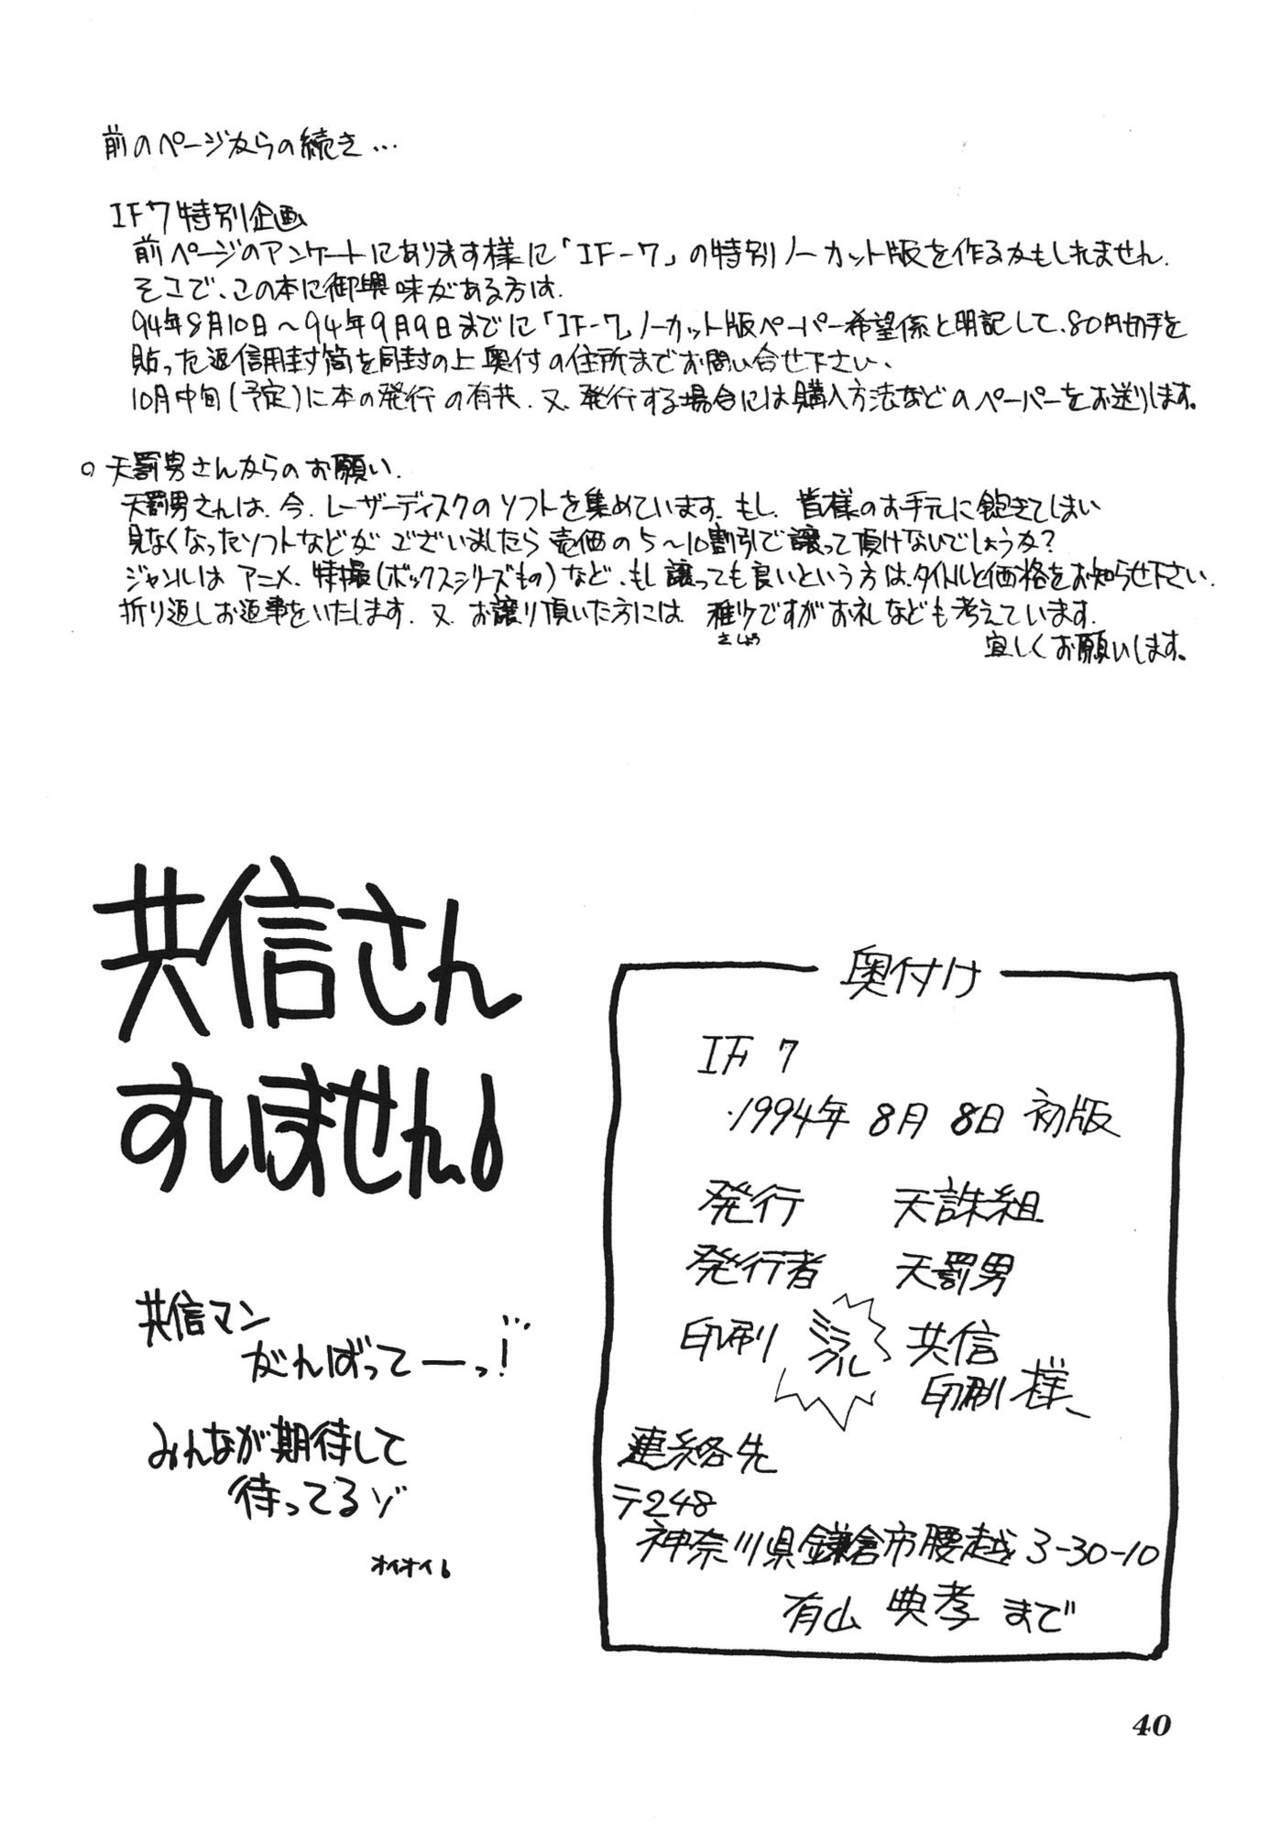 前のページからの続き…
IF7特別企画
前ページのアンケートにあります様に「IF-7」の特別ノーカット版を作るかもしれません.
そこで、この本に御興味がある方は.
94年8月10日～94年9月9日までに「IF-7」ノーカット版ペーパー希望係と明記して、80円切手を
貼った返信用封筒を同封の上奥付の住所までお問い合せ下さい、
10月中旬(予定)に本の発行の有無. 又. 発行する場合には購入方法などのペーパーをお送りします。
○天罰男さんからのお願い.
天罰男さんは、今、レーザーディスクのソフトを集めています。もし、皆様のお手元に飽きてしまい
見なくなったソフトなどがございましたら売価の5～10割引で譲って頂けないでしょうか?
ジャンルはアニメ、特撮(ボックスシリーズもの)など、もし譲っても良いという方は、タイトルと価格をお知らせ下さい.
折り返しお返事をいたします. 又. お譲り頂いた方には 些少ですがお礼なども考えています.
さしょう
宜しくお願いします。
共信さん
すいません。
共信マン
がんばってーっ!
みんなが期待して
待ってるゾ
オイオイ。
奥付け
IF 7
1994年 8月 8日 初版
発行 天誅組
発行者 天罰男
印刷 ミラクル 共信
印刷 様
連絡先
〒248
神奈川県鎌倉市腰越3-30-10
有山 典孝 まで
40